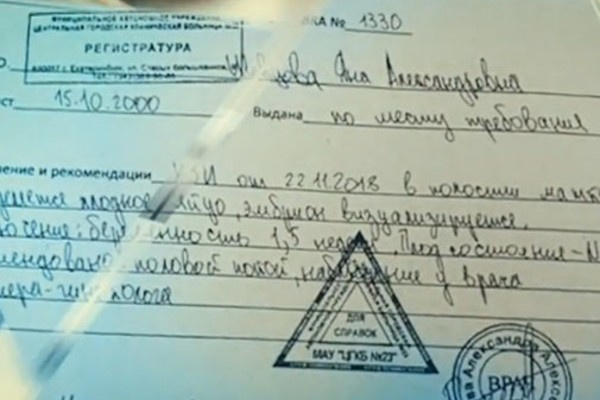 МУНИЦИПАЛЬНОЕ АВТОНОМНОЕ УЧРЕЖДЕНИЕ
ЦЕНТРАЛЬНАЯ ГОРОДСКАЯ КЛИНИЧЕСКАЯ БОЛЬНИЦА
РЕГИСТРАТУРА
г. Екатеринбург, ул. Старых Большевиков,
ВКА № 1330
Яна Александровна
15.10.2000 Выдана по месту требования
ение и рекомендации УЗИ от 22.11.2018 в полости матк
плодное яйцо, эмбрион визуализируется.
ючение: беременность 1,5 недел. Плод состояние - N
мендовано половой покой, наблюдение у врача
шера-гинеколога
ДЛЯ
СПРАВОК
МАУ "ЦГКБ №23"
ва Александра Алекс
ВРАЧ